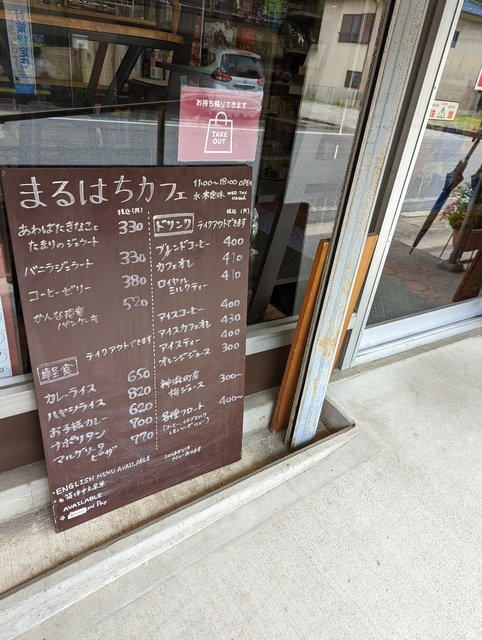 お持ち帰りできます
TAKE
OUT
まるはちカフェ
11:00〜18:00 OPEN
水・木定休 WED THU closed
税込(円)
あわばたきなこと
たまりのジェラート 330
バニラジェラート 330
コーヒーゼリー 380
パンケーキ 520
テイクアウトできます
軽食
カレーライス 650
ハヤシライス 820
お子様カレー 620
ナポリタン 700
マルゲリータ
ピザ 770
税込(円)
ドリンク テイクアウトできます
ブレンドコーヒー 400
カフェオレ 410
ロイヤル
ミルクティー 410
アイスコーヒー 400
アイスカフェオレ 430
アイスティー 400
オレンジジュース 300
神流町産
梅ジュース 300〜
各種フロート 400〜
・ENGLISH MENU AVAILABLE
AVAILABLE
Pay